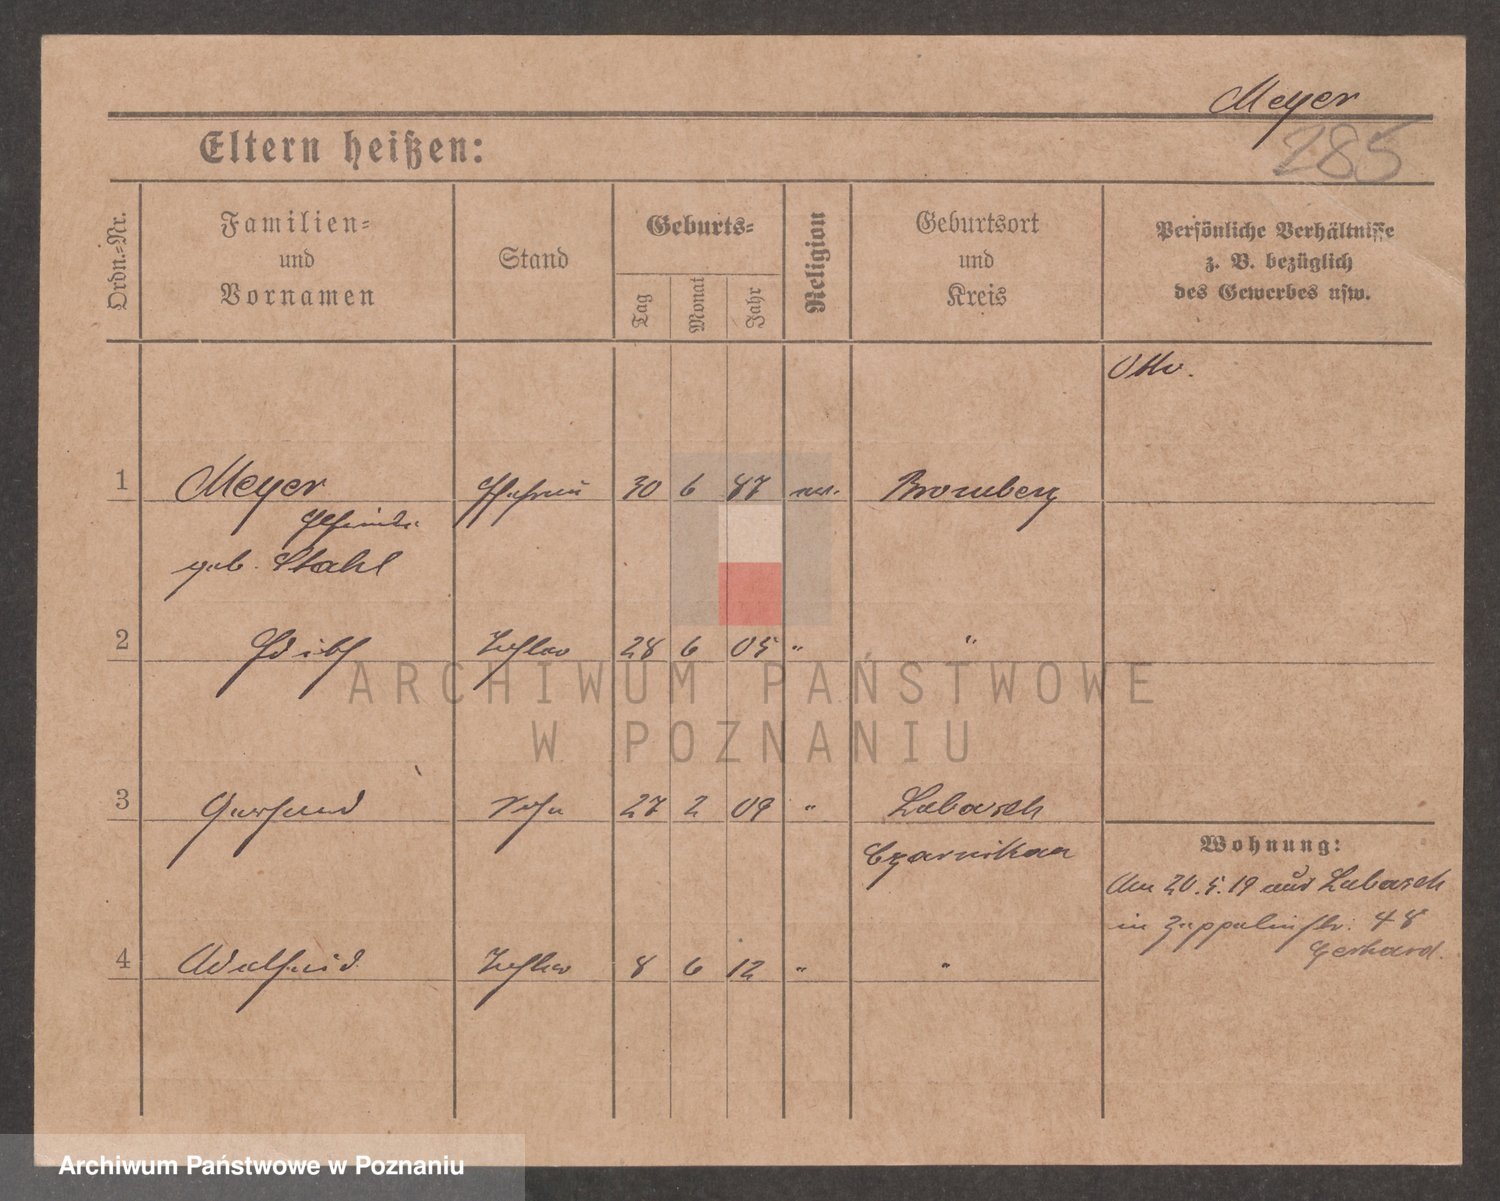 Meyer
285
Eltern heißen:
Ordn.=Nr.
Familien=
und
Vornamen
Stand
Geburts=
Tag
Monat
Jahr
Religion
Geburtsort
und
Kreis
Persönliche Verhältnisse
z. B. bezüglich
des Gewerbes usw.
Otto.
1 Meyer Ehefrau 30 6 87 ev. Bromberg
geb. Stahl
2 Edith Tochter 28 6 05 " "
3 Gerhard Sohn 27 2 09 " Lubasch
Czarnikau
Wohnung:
Am 20.5.19 aus Lubasch
in Zeppelinstr. 48
Gerhard.
4 Adelheid Tochter 8 6 12 " "
ARCHIWUM PAŃSTWOWE
W POZNANIU
Archiwum Państwowe w Poznaniu